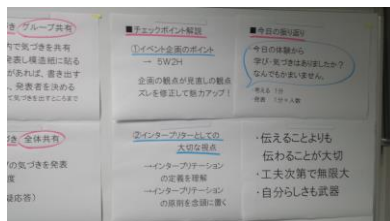 き グループ共有
内で気づきを共有
発表し模造紙に貼る
があれば、書き出す
、発表者を決める
て気づきを出すところまで
■チェックポイント解説
①イベント企画のポイント
→ 5W2H
企画の観点が見直しの観点
ズレを修正して魅力アップ!
■今日の振り返り
今日の体験から
学び・気づきはありましたか?
なんでもかまいません。
・考える 1分
・発表 1分×人数
き 全体共有
の気づきを発表
疑応答)
②インタープリターとしての
大切な視点
→インタープリテーション
の定義を理解
→インタープリテーション
の原則を念頭に置く
・伝えることよりも
伝わることが大切
・工夫次第で無限大
・自分らしさも武器